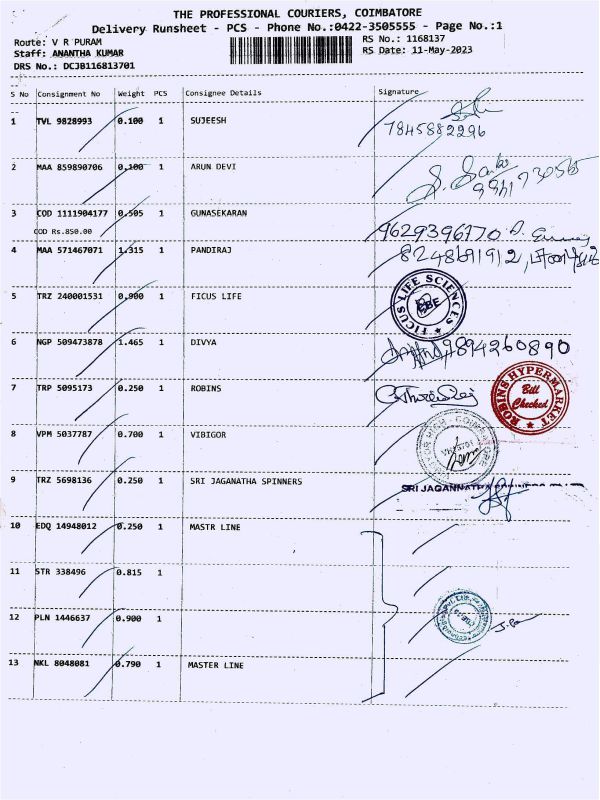 THE PROFESSIONAL COURIERS, COIMBATORE
Delivery Runsheet - PCS - Phone No.:0422-3505555 - Page No.:1
Route: V R PURAM
RS No.: 1168137
Staff: ANANTHA KUMAR
RS Date: 11-May-2023
DRS No.: DCJB116813701
S No Consignment No Weight PCS Consignee Details Signature
1 TVL 9828993 0.100 1 SUJEESH
7845882296
2 MAA 859890706 0.100 1 ARUN DEVI
3 COD 1111904177 0.505 1 GUNASEKARAN
COD Rs.850.00
9629396170
4 MAA 571467071 1.315 1 PANDIRAJ
8248691912,
5 TRZ 240001531 0.900 1 FICUS LIFE
FICUS LIFE SCIENCES
CBE
6 NGP 509473878 1.465 1 DIVYA
9894260890
7 TRP 5095173 0.250 1 ROBINS
ROBINS HYPERMARKET
Bill
Checked
8 VPM 5037787 0.700 1 VIBIGOR
9 TRZ 5698136 0.250 1 SRI JAGANATHA SPINNERS
SRI JAGANNATHA
10 EDQ 14948012 0.250 1 MASTR LINE
11 STR 338496 0.815 1
12 PLN 1446637 0.900 1
13 NKL 8048081 0.790 1 MASTER LINE